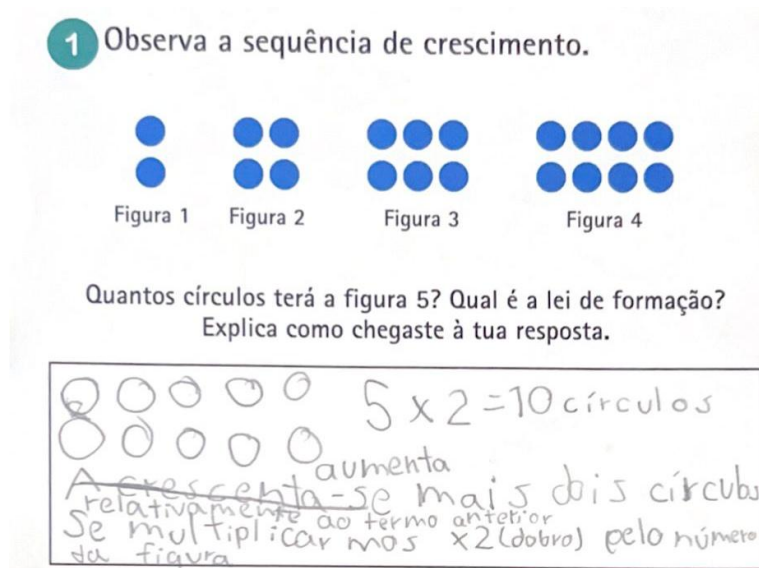 1 Observa a sequência de crescimento.
Figura 1 Figura 2 Figura 3 Figura 4
Quantos círculos terá a figura 5? Qual é a lei de formação?
Explica como chegaste à tua resposta.
5 x 2 = 10 círculos
aumenta
Acrescenta-se mais dois círculos
relativamente ao termo anterior
Se multiplicarmos x2 (dobro) pelo número
da figura